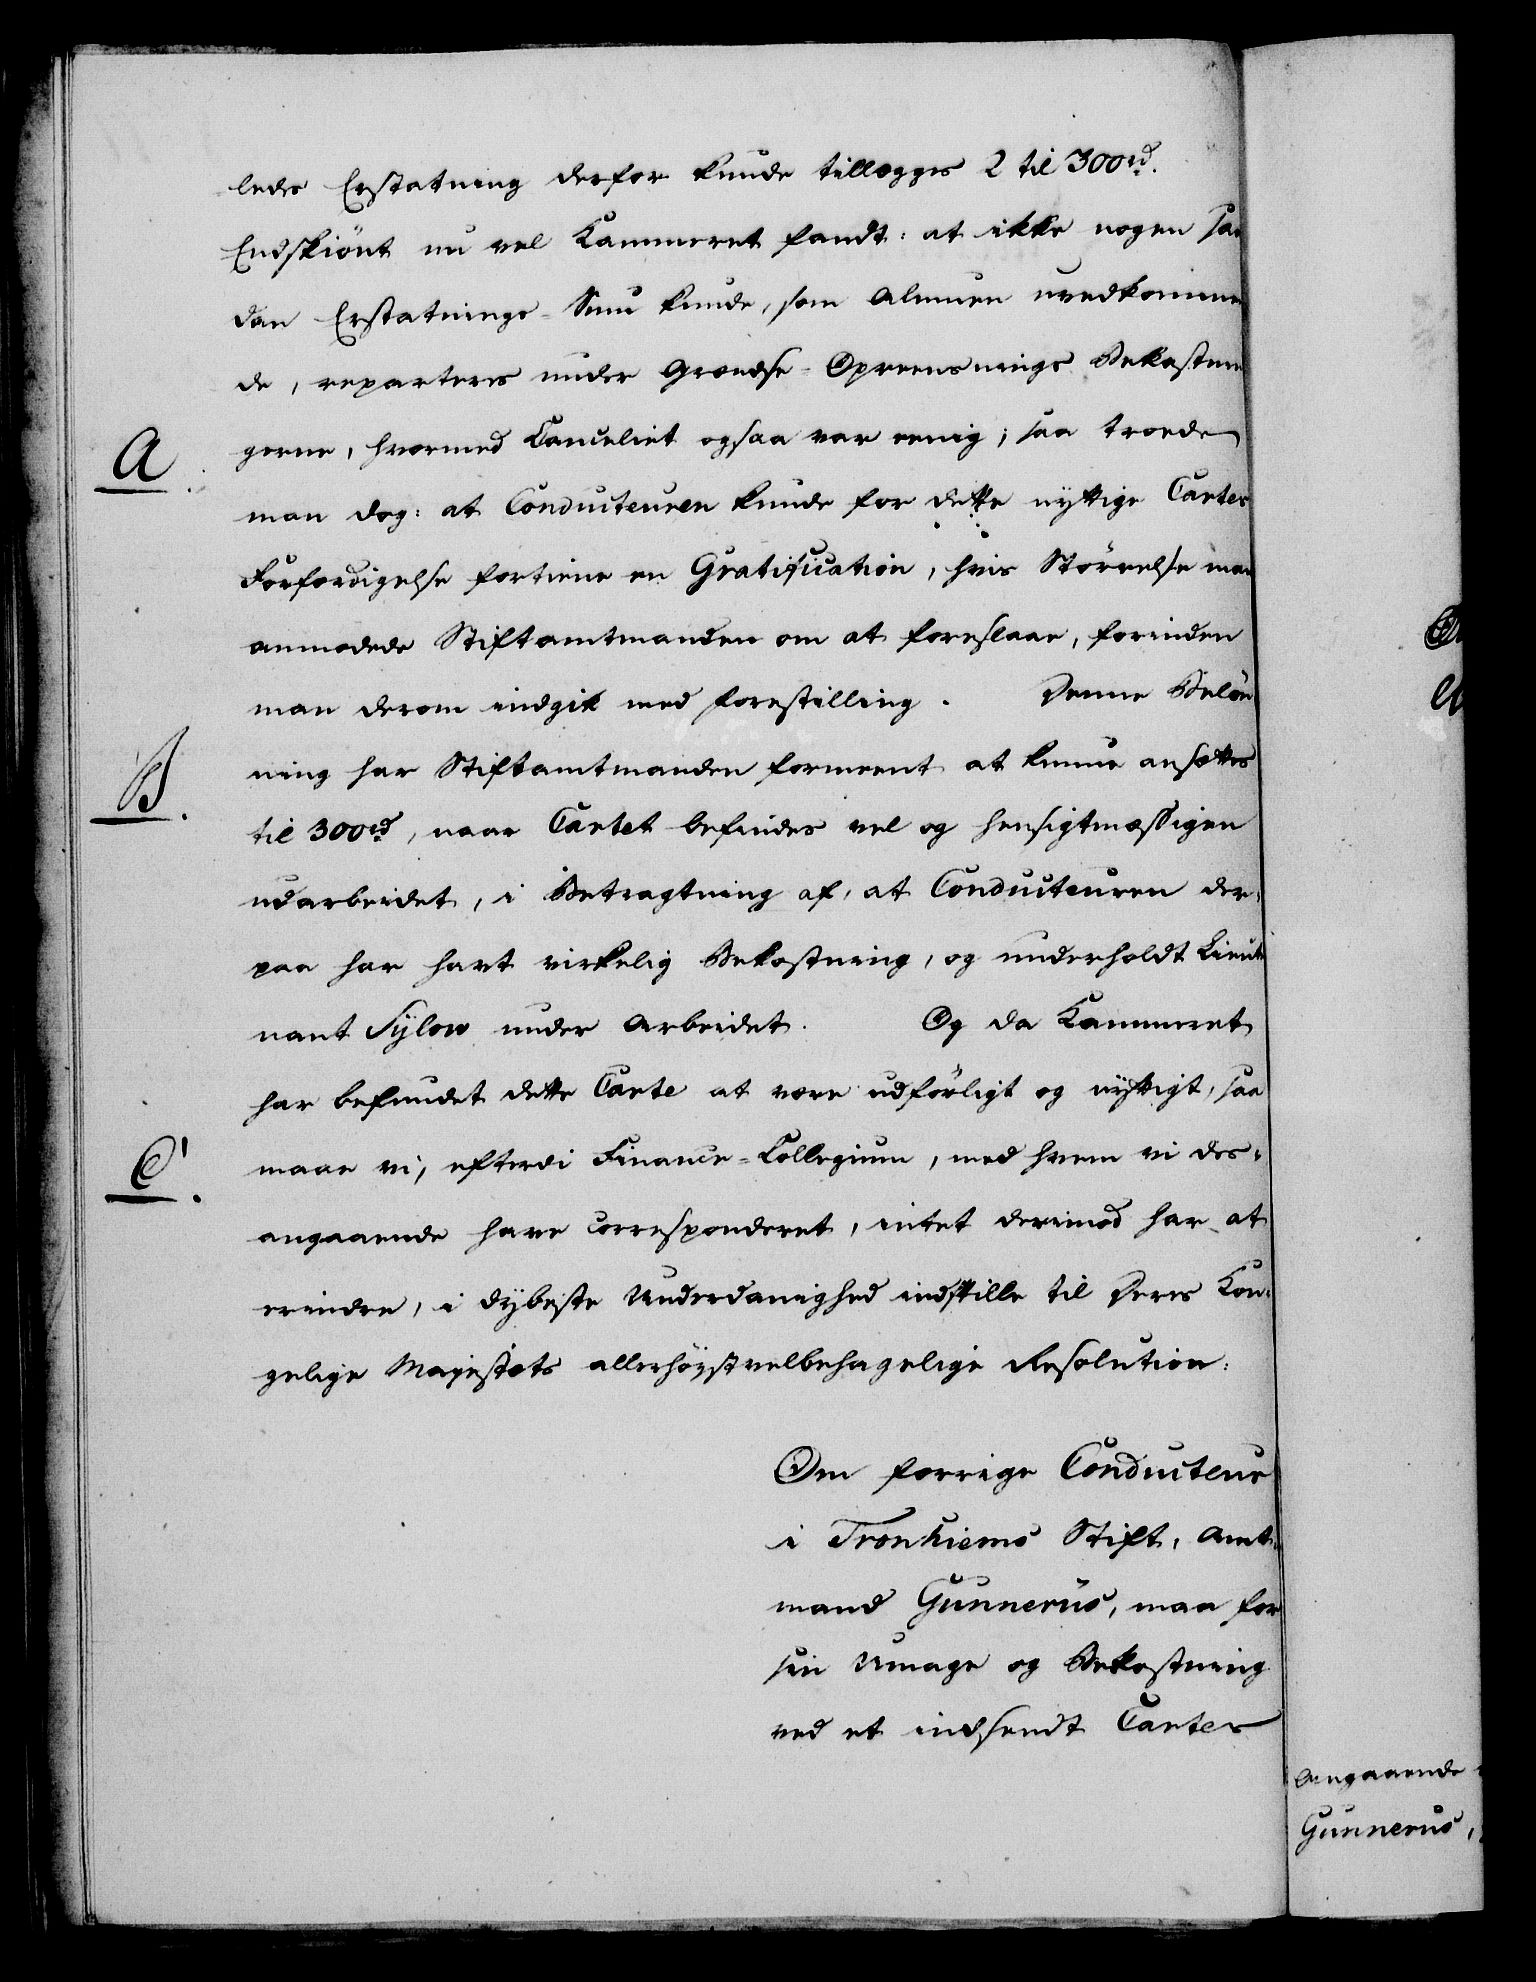 ledes Erstatning derfor kunde tillægges 2 til 300rd.
Endskiönt nu vel Kammeret fandt: at ikke nogen saa
dan Erstatnings-Sum kunde, som Almuen uvedkommen
de, reparteres under Grændse-Opreensnings Bekostnin
A. gerne, hvormed Cancelliet ogsaa var eenig; saa troede
man dog: at Conducteuren kunde for dette nyttige Cartes
Forfærdigelse fortiene en Gratification, hvis Störrelse man
anmodede Stiftamtmanden om at foreslaae, forinden
man derom indgik med Forestilling. Denne Belön
B. ning har Stiftamtmanden formeent at kunne ansættes
til 300rd, naar Cartet befindes vel og hensigtmæssigen
udarbeidet, i Betragtning af, at Conducteuren der-
paa har havt virkelig Bekostning, og underholdt Lieute
nant Sÿlow under Arbeidet. Og da Kammeret
har befundet dette Carte at være udförligt og nyttigt, saa
C. maae vi, efterdi Finance-Collegium, med hvem vi des-
angaaende have correspondert, intet derimod har at
erindre, i dybeste Underdanighed indstille til Deres Kon-
gelige Majestæts allerhöystvelbehagelige Resolution:
Om forrige Conducteur
i Tronhiems Stift, Amt-
mand Gunnerus, maa for
sin Umage og Bekostning
ved et indsendt Cartes
Angaaende
Gunnerus,